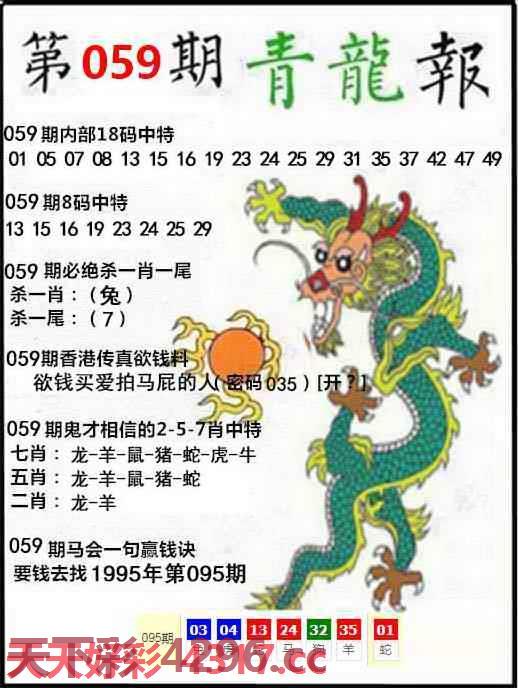 第059期青龍報
059期内部18码中特
01 05 07 08 13 15 16 19 23 24 25 29 31 35 37 42 47 49
059期8码中特
13 15 16 19 23 24 25 29
059 期必绝杀一肖一尾
杀一肖：(兔)
杀一尾：(7)
059期香港传真欲钱料
欲钱买爱拍马屁的人(密码035)[开?]
059期鬼才相信的2-5-7肖中特
七肖：龙-羊-鼠-猪-蛇-虎-牛
五肖：龙-羊-鼠-猪-蛇
二肖：龙-羊
059期马会一句赢钱诀
要钱去找1995年第095期
095期 03 04 13 24 32 35 01
马 狗 羊 蛇
天下好彩4296.cc